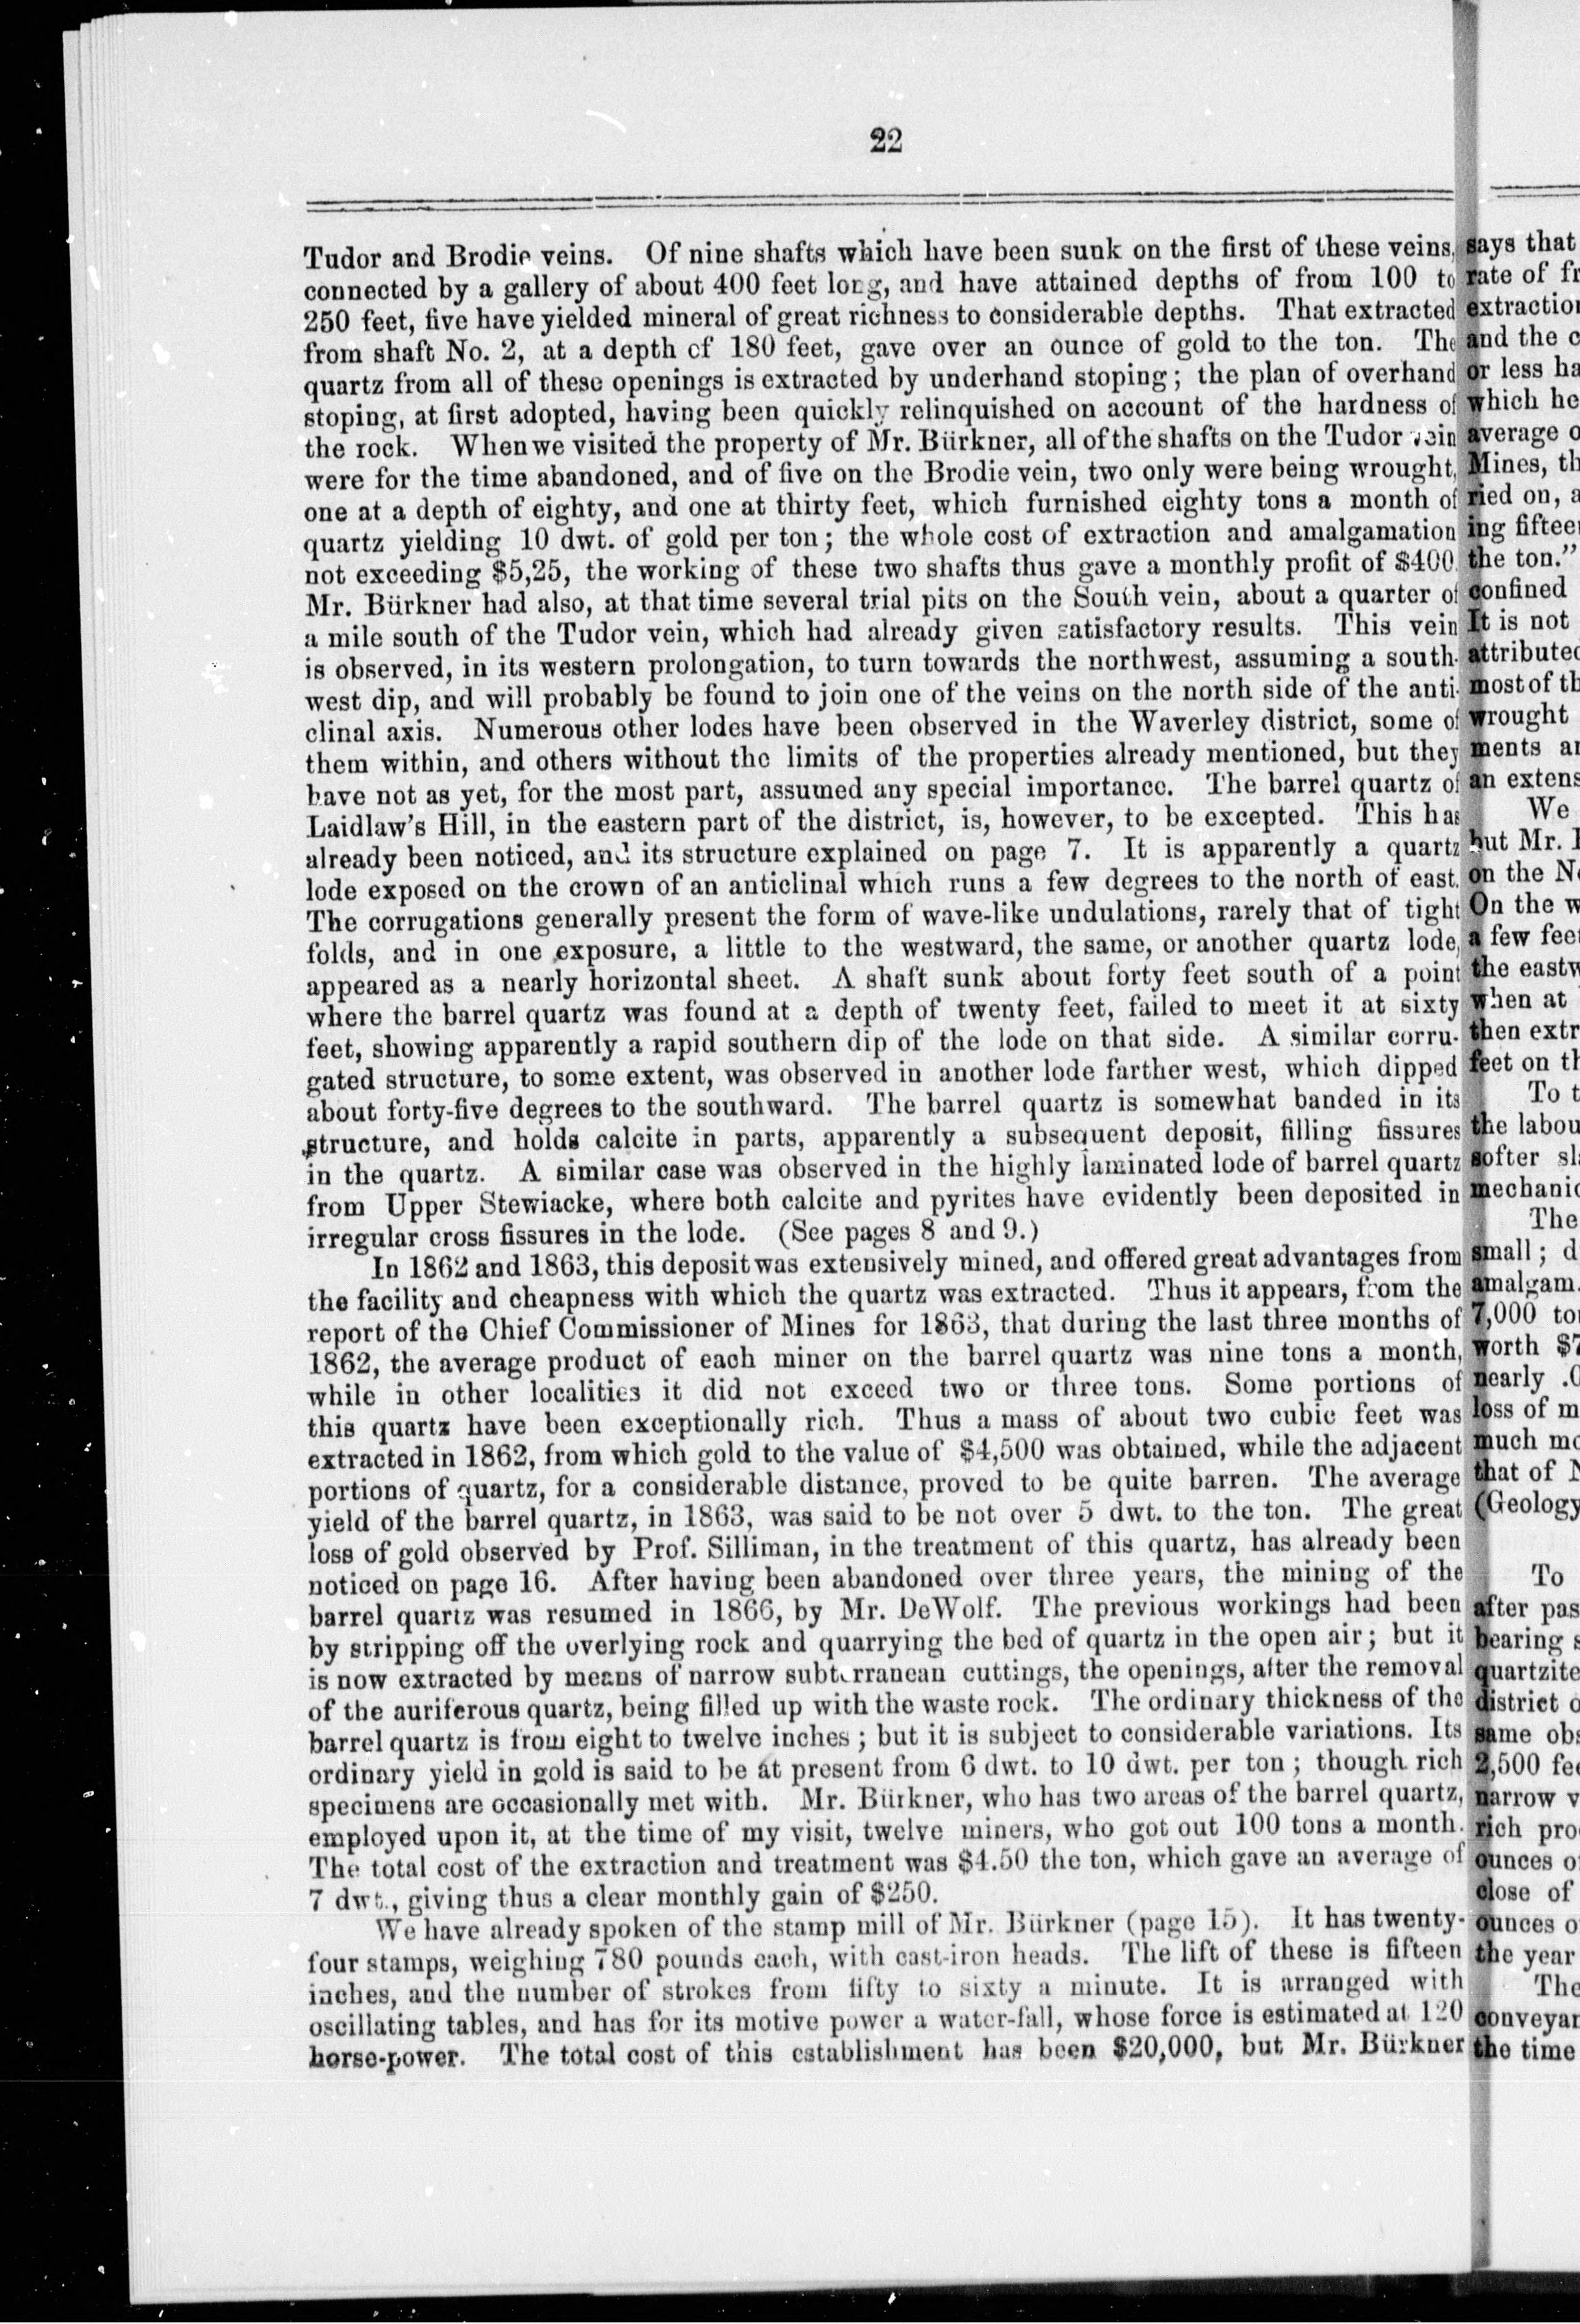 22
Tudor and Brodie veins. Of nine shafts which have been sunk on the first of these veins,
connected by a gallery of about 400 feet long, and have attained depths of from 100 to
250 feet, five have yielded mineral of great richness to considerable depths. That extracted
from shaft No. 2, at a depth of 180 feet, gave over an ounce of gold to the ton. The
quartz from all of these openings is extracted by underhand stoping; the plan of overhand
stoping, at first adopted, having been quickly relinquished on account of the hardness of
the rock. When we visited the property of Mr. Bürkner, all of the shafts on the Tudor vein
were for the time abandoned, and of five on the Brodie vein, two only were being wrought,
one at a depth of eighty, and one at thirty feet, which furnished eighty tons a month of
quartz yielding 10 dwt. of gold per ton; the whole cost of extraction and amalgamation
not exceeding $5,25, the working of these two shafts thus gave a monthly profit of $400.
Mr. Bürkner had also, at that time several trial pits on the South vein, about a quarter of
a mile south of the Tudor vein, which had already given satisfactory results. This vein
is observed, in its western prolongation, to turn towards the northwest, assuming a south-
west dip, and will probably be found to join one of the veins on the north side of the anti-
clinal axis. Numerous other lodes have been observed in the Waverley district, some of
them within, and others without the limits of the properties already mentioned, but they
have not as yet, for the most part, assumed any special importance. The barrel quartz of
Laidlaw's Hill, in the eastern part of the district, is, however, to be excepted. This has
already been noticed, and its structure explained on page 7. It is apparently a quartz
lode exposed on the crown of an anticlinal which runs a few degrees to the north of east.
The corrugations generally present the form of wave-like undulations, rarely that of tight
folds, and in one exposure, a little to the westward, the same, or another quartz lode,
appeared as a nearly horizontal sheet. A shaft sunk about forty feet south of a point
where the barrel quartz was found at a depth of twenty feet, failed to meet it at sixty
feet, showing apparently a rapid southern dip of the lode on that side. A similar corru-
gated structure, to some extent, was observed in another lode farther west, which dipped
about forty-five degrees to the southward. The barrel quartz is somewhat banded in its
structure, and holds calcite in parts, apparently a subsequent deposit, filling fissures
in the quartz. A similar case was observed in the highly laminated lode of barrel quartz
from Upper Stewiacke, where both calcite and pyrites have evidently been deposited in
irregular cross fissures in the lode. (See pages 8 and 9.)
In 1862 and 1863, this deposit was extensively mined, and offered great advantages from
the facility and cheapness with which the quartz was extracted. Thus it appears, from the
report of the Chief Commissioner of Mines for 1863, that during the last three months of
1862, the average product of each miner on the barrel quartz was nine tons a month,
while in other localities it did not exceed two or three tons. Some portions of
this quartz have been exceptionally rich. Thus a mass of about two cubic feet was
extracted in 1862, from which gold to the value of $4,500 was obtained, while the adjacent
portions of quartz, for a considerable distance, proved to be quite barren. The average
yield of the barrel quartz, in 1863, was said to be not over 5 dwt. to the ton. The great
loss of gold observed by Prof. Silliman, in the treatment of this quartz, has already been
noticed on page 16. After having been abandoned over three years, the mining of the
barrel quartz was resumed in 1866, by Mr. DeWolf. The previous workings had been
by stripping off the overlying rock and quarrying the bed of quartz in the open air; but it
is now extracted by means of narrow subterranean cuttings, the openings, after the removal
of the auriferous quartz, being filled up with the waste rock. The ordinary thickness of the
barrel quartz is from eight to twelve inches; but it is subject to considerable variations. Its
ordinary yield in gold is said to be at present from 6 dwt. to 10 dwt. per ton; though rich
specimens are occasionally met with. Mr. Bürkner, who has two areas of the barrel quartz,
employed upon it, at the time of my visit, twelve miners, who got out 100 tons a month.
The total cost of the extraction and treatment was $4.50 the ton, which gave an average of
7 dwt., giving thus a clear monthly gain of $250.
We have already spoken of the stamp mill of Mr. Bürkner (page 15). It has twenty-
four stamps, weighing 780 pounds each, with cast-iron heads. The lift of these is fifteen
inches, and the number of strokes from fifty to sixty a minute. It is arranged with
oscillating tables, and has for its motive power a water-fall, whose force is estimated at 120
horse-power. The total cost of this establishment has been $20,000, but Mr. Bürkner
says that
rate of
and the
or less
which he
average
Mines,
ried on,
ing
the ton."
confined
It is not
most of
wrought
ments
an
We
but Mr.
on the
On the
a few
the
when at
then
feet on
To
the
softer
The
small;
amalgam.
7,000
worth
nearly
loss of
much
that of
(Geology
To
after
bearing
district
same
2,500
narrow
rich
ounces
close of
ounces
the year
The
the time